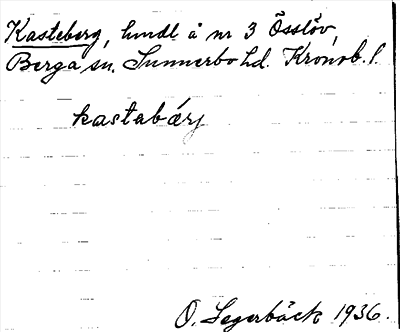 Kasteberg, hmdl å nr 3 Össlöv,
Berga sn. Sunnerbo hd. Kronob. l.
kastabærj
O. Segerbäck 1936.